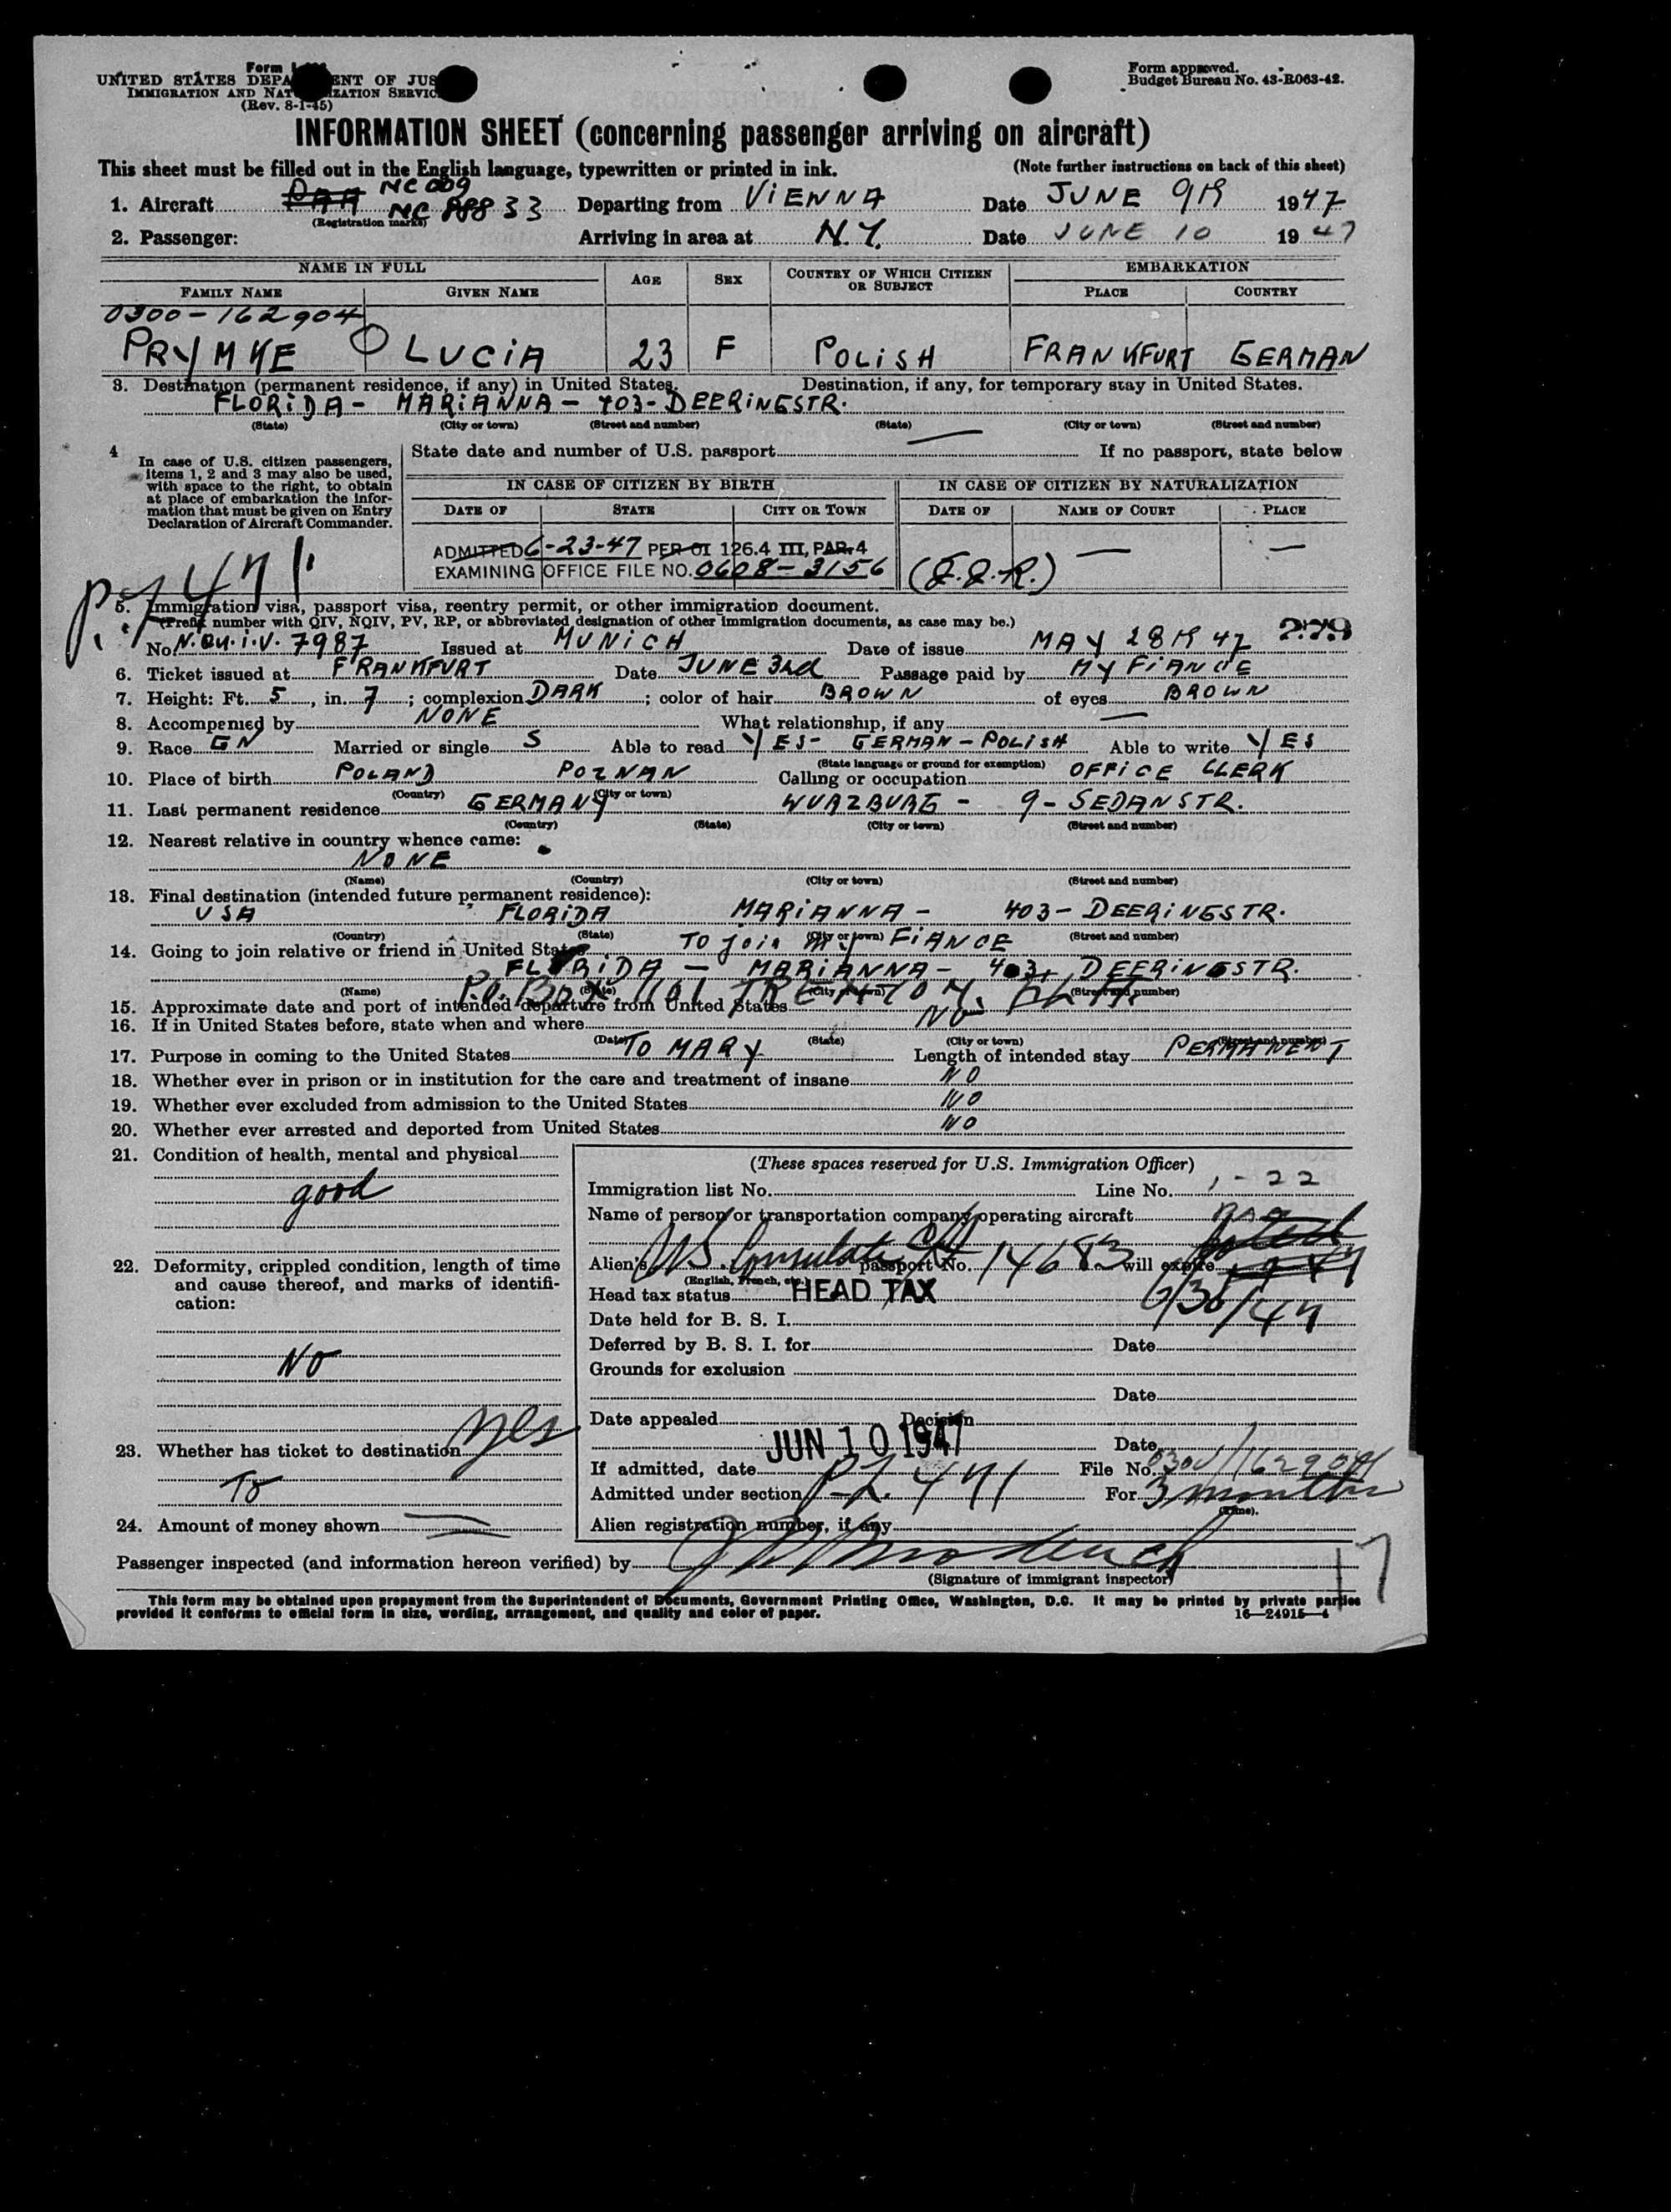 Form
UNITED STATES DEPA ENT OF JUS
IMMIGRATION AND NAT IZATION SERVIC
(Rev. 8-1-45)
Form approved.
Budget Bureau No. 43-R063-42.
INFORMATION SHEET (concerning passenger arriving on aircraft)
This sheet must be filled out in the English language, typewritten or printed in ink. (Note further instructions on back of this sheet)
NC 009
1. Aircraft PAA NC 88833 Departing from VIENNA Date JUNE 9th 1947
(Registration marks)
2. Passenger: Arriving in area at N.Y. Date JUNE 10 1947
NAME IN FULL AGE SEX COUNTRY OF WHICH CITIZEN OR SUBJECT EMBARKATION
FAMILY NAME GIVEN NAME PLACE COUNTRY
0300-162904
PRYMKE LUCIA 23 F POLISH FRANKFURT GERMAN
3. Destination (permanent residence, if any) in United States. Destination, if any, for temporary stay in United States.
FLORIDA - MARIANNA - 403 - DEERINGSTR.
(State) (City or town) (Street and number) (State) (City or town) (Street and number)
4 In case of U.S. citizen passengers, items 1, 2 and 3 may also be used, with space to the right, to obtain at place of embarkation the information that must be given on Entry Declaration of Aircraft Commander.
State date and number of U.S. passport — If no passport, state below
IN CASE OF CITIZEN BY BIRTH IN CASE OF CITIZEN BY NATURALIZATION
DATE OF STATE CITY OR TOWN DATE OF NAME OF COURT PLACE
ADMITTED 6-23-47 PER OI 126.4 III, PAR. 4
EXAMINING OFFICE FILE NO. 0608-3156
P.L. 471
5. Immigration visa, passport visa, reentry permit, or other immigration document.
(Prefix number with QIV, NQIV, PV, RP, or abbreviated designation of other immigration documents, as case may be.)
279
No. N.QU.I.V. 7987 Issued at MUNICH Date of issue MAY 28th 47
6. Ticket issued at FRANKFURT Date JUNE 3rd Passage paid by MY FIANCE
7. Height: Ft. 5, in. 7; complexion DARK; color of hair BROWN of eyes BROWN
8. Accompanied by NONE What relationship, if any —
9. Race GN Married or single S Able to read YES - GERMAN - POLISH Able to write YES
(State language or ground for exemption)
10. Place of birth POLAND POZNAN Calling or occupation OFFICE CLERK
(Country) (City or town)
11. Last permanent residence GERMANY WURZBURG - 9 - SEDANSTR.
(Country) (State) (City or town) (Street and number)
12. Nearest relative in country whence came:
NONE
(Name) (Country) (City or town) (Street and number)
13. Final destination (intended future permanent residence):
USA FLORIDA MARIANNA - 403 - DEERINGSTR.
(Country) (State) (City or town) (Street and number)
14. Going to join relative or friend in United States To join my FIANCE
FLORIDA - MARIANNA - 403, DEERINGSTR.
(Name) (State) (City or town) (Street and number)
P.O. Box 1101 TRENTON, FLA.
15. Approximate date and port of intended departure from United States
16. If in United States before, state when and where NO
(Date) (State) (City or town) (Street and number)
17. Purpose in coming to the United States TO MARY Length of intended stay PERMANENT
18. Whether ever in prison or in institution for the care and treatment of insane NO
19. Whether ever excluded from admission to the United States NO
20. Whether ever arrested and deported from United States NO
21. Condition of health, mental and physical
good
22. Deformity, crippled condition, length of time and cause thereof, and marks of identification:
No
23. Whether has ticket to destination yes
To
24. Amount of money shown
(These spaces reserved for U.S. Immigration Officer)
Immigration list No. Line No. 1-22
Name of person or transportation company operating aircraft
Alien's US Consulate passport No. 14683 will expire
(English, French, etc.)
6/30/47
Head tax status HEAD TAX
Date held for B. S. I.
Deferred by B. S. I. for Date
Grounds for exclusion
Date
Date appealed Decision
Date
JUN 10 1947
If admitted, date File No. 0300/162904
Admitted under section P.L. 471 For 3 months
(Time).
Alien registration number, if any
Passenger inspected (and information hereon verified) by
(Signature of immigrant inspector)
17
This form may be obtained upon prepayment from the Superintendent of Documents, Government Printing Office, Washington, D.C. It may be printed by private parties
provided it conforms to official form in size, wording, arrangement, and quality and color of paper. 16—24915-4